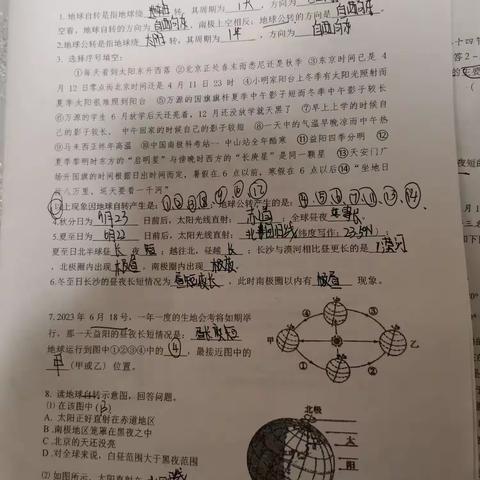 1.地球自转是指地球绕 转，其周期为 1天 ，方向为
空看，地球自转的方向为 自西向东 ，南极上空相反；地球公转的方向是 自西向东
2.地球公转是指地球绕 太阳 转，其周期为 1年 ，方向为 自西向东
3. 选择序号填空：
①每天看到太阳东升西落 ②北京正处春末而悉尼还是秋季 ③东京时间已是 4
月 12 日零点而北京时间还是 4 月 11 日 23 时 ④小明家阳台上冬季有太阳光照射而
夏季太阳很难照到阳台 ⑤万源的国旗旗杆夏季中午影子短而冬季中午影子较长
⑥万源的学生 6 月放学后天还亮着，12 月还没放学就天黑了 ⑦早上上学的时候自
己的影子较长，中午回家的时候自己的影子较短 ⑧一天中的气温早晚凉而中午热
⑨马来西亚终年高温 ⑩中国南极科考站一中山站全年酷寒 ⑪益阳四季分明 ⑫
夏季黎明时东方的"启明星"与傍晚时西方的"长庚星"是同一颗星 ⑬天安门广
场升国旗的时间根据日出时间而定，暑假在 6 点以前，寒假在 6 点以后⑭"坐地日
行八万里，巡天要看一千河"
以上现象因地球自转产生是： ；地球公转产生的是：
4.秋分日为 9月23 日前后，太阳光线直射： 赤道 ；全球昼夜 等长
5.夏至日为 6月22 日前后，太阳光线直射： 北回归线 （纬度写作：23.5°N）
夏至日北半球昼 长 夜 短 ；越往北，昼越 长 ；长沙与漠河相比昼更长的是 漠河
，北极圈内出现 极昼 ，南极圈内出现 极夜 。
6.冬至日长沙的昼夜长短情况为 昼短夜长 ，此时南极圈以内有 极昼 现象。
7.2023 年 6 月 18 号，一年一度的生地会考将如期举
行，那一天益阳的昼夜长短情况是： 昼长夜短
地球运行到图中①②③④中的 ④ ，最接近图中的
甲 （甲或乙）位置。
④
③
甲
乙
①
②
8. 读地球自转示意图，回答问题。
⑴ 在该图中( B )
A. 太阳正好直射在赤道地区
B .南极地区笼罩在黑夜之中
C .北京的天还没亮
D .对全球来说，白昼范围大于黑夜范围
北极
太
阳
⑵ 如图所示，太阳直射在